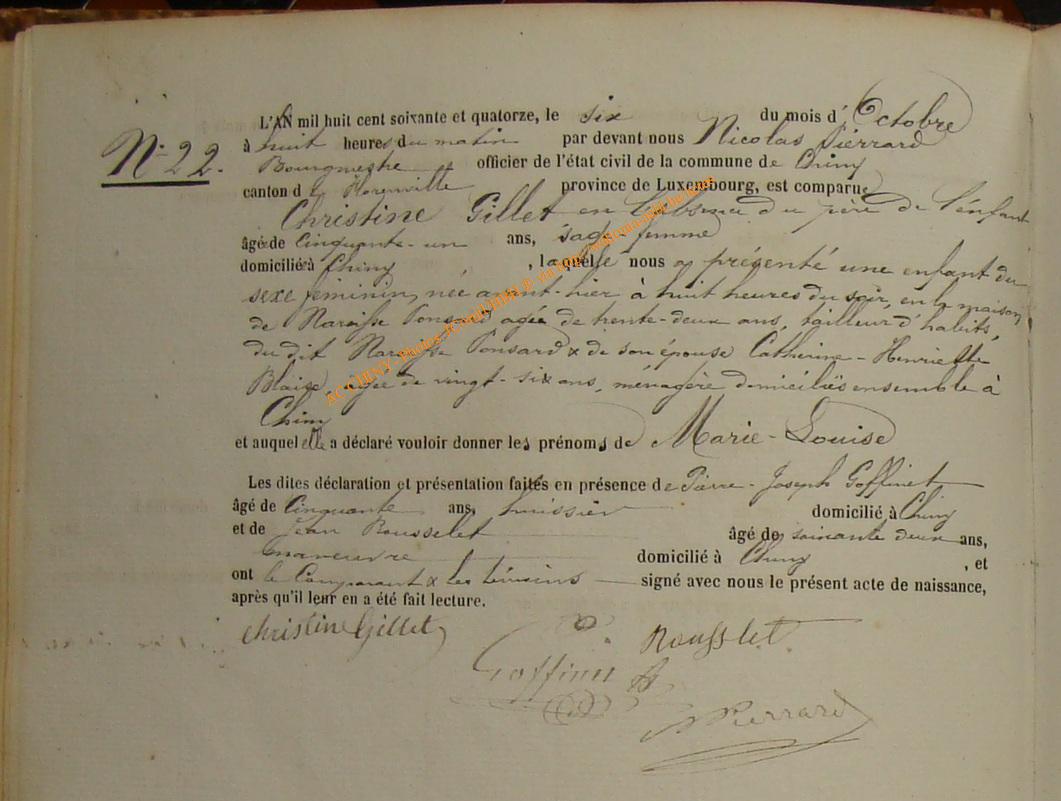 L'AN mil huit cent soixante et quatorze, le six du mois d'Octobre
N° 22. à huit heures du matin par devant nous Nicolas Pierrard
Bourgmestre et officier de l'état civil de la commune de Chiny
canton de Florenville province de Luxembourg, est comparue
Christine Gillet en l'absence du père de l'enfant
âgée de Cinquante-un ans, sage femme
domiciliée à Chiny, laquelle nous a présenté une enfant du
sexe féminin, née avant-hier à huit heures du soir, en la maison
de Narcisse Ponsard agée de trente-deux ans, tailleur d'habits
du dit Narcisse Ponsard & de son épouse Catherine-Henriette
Blaise, agée de vingt-six ans, ménagère domiciliés ensemble à
Chiny
et auquel elle a déclaré vouloir donner les prénoms de Marie-Louise
Les dites déclaration et présentation faites en présence de Pierre-Joseph Goffinet
âgé de Cinquante ans, huissier domicilié à Chiny
et de Jean Rousselet âgé de soixante deux ans,
manœuvre domicilié à Chiny, et
ont le Comparant & les témoins signé avec nous le présent acte de naissance,
après qu'il leur en a été fait lecture.
Christine Gillet
Rousslet
Goffinet
N Pierrard